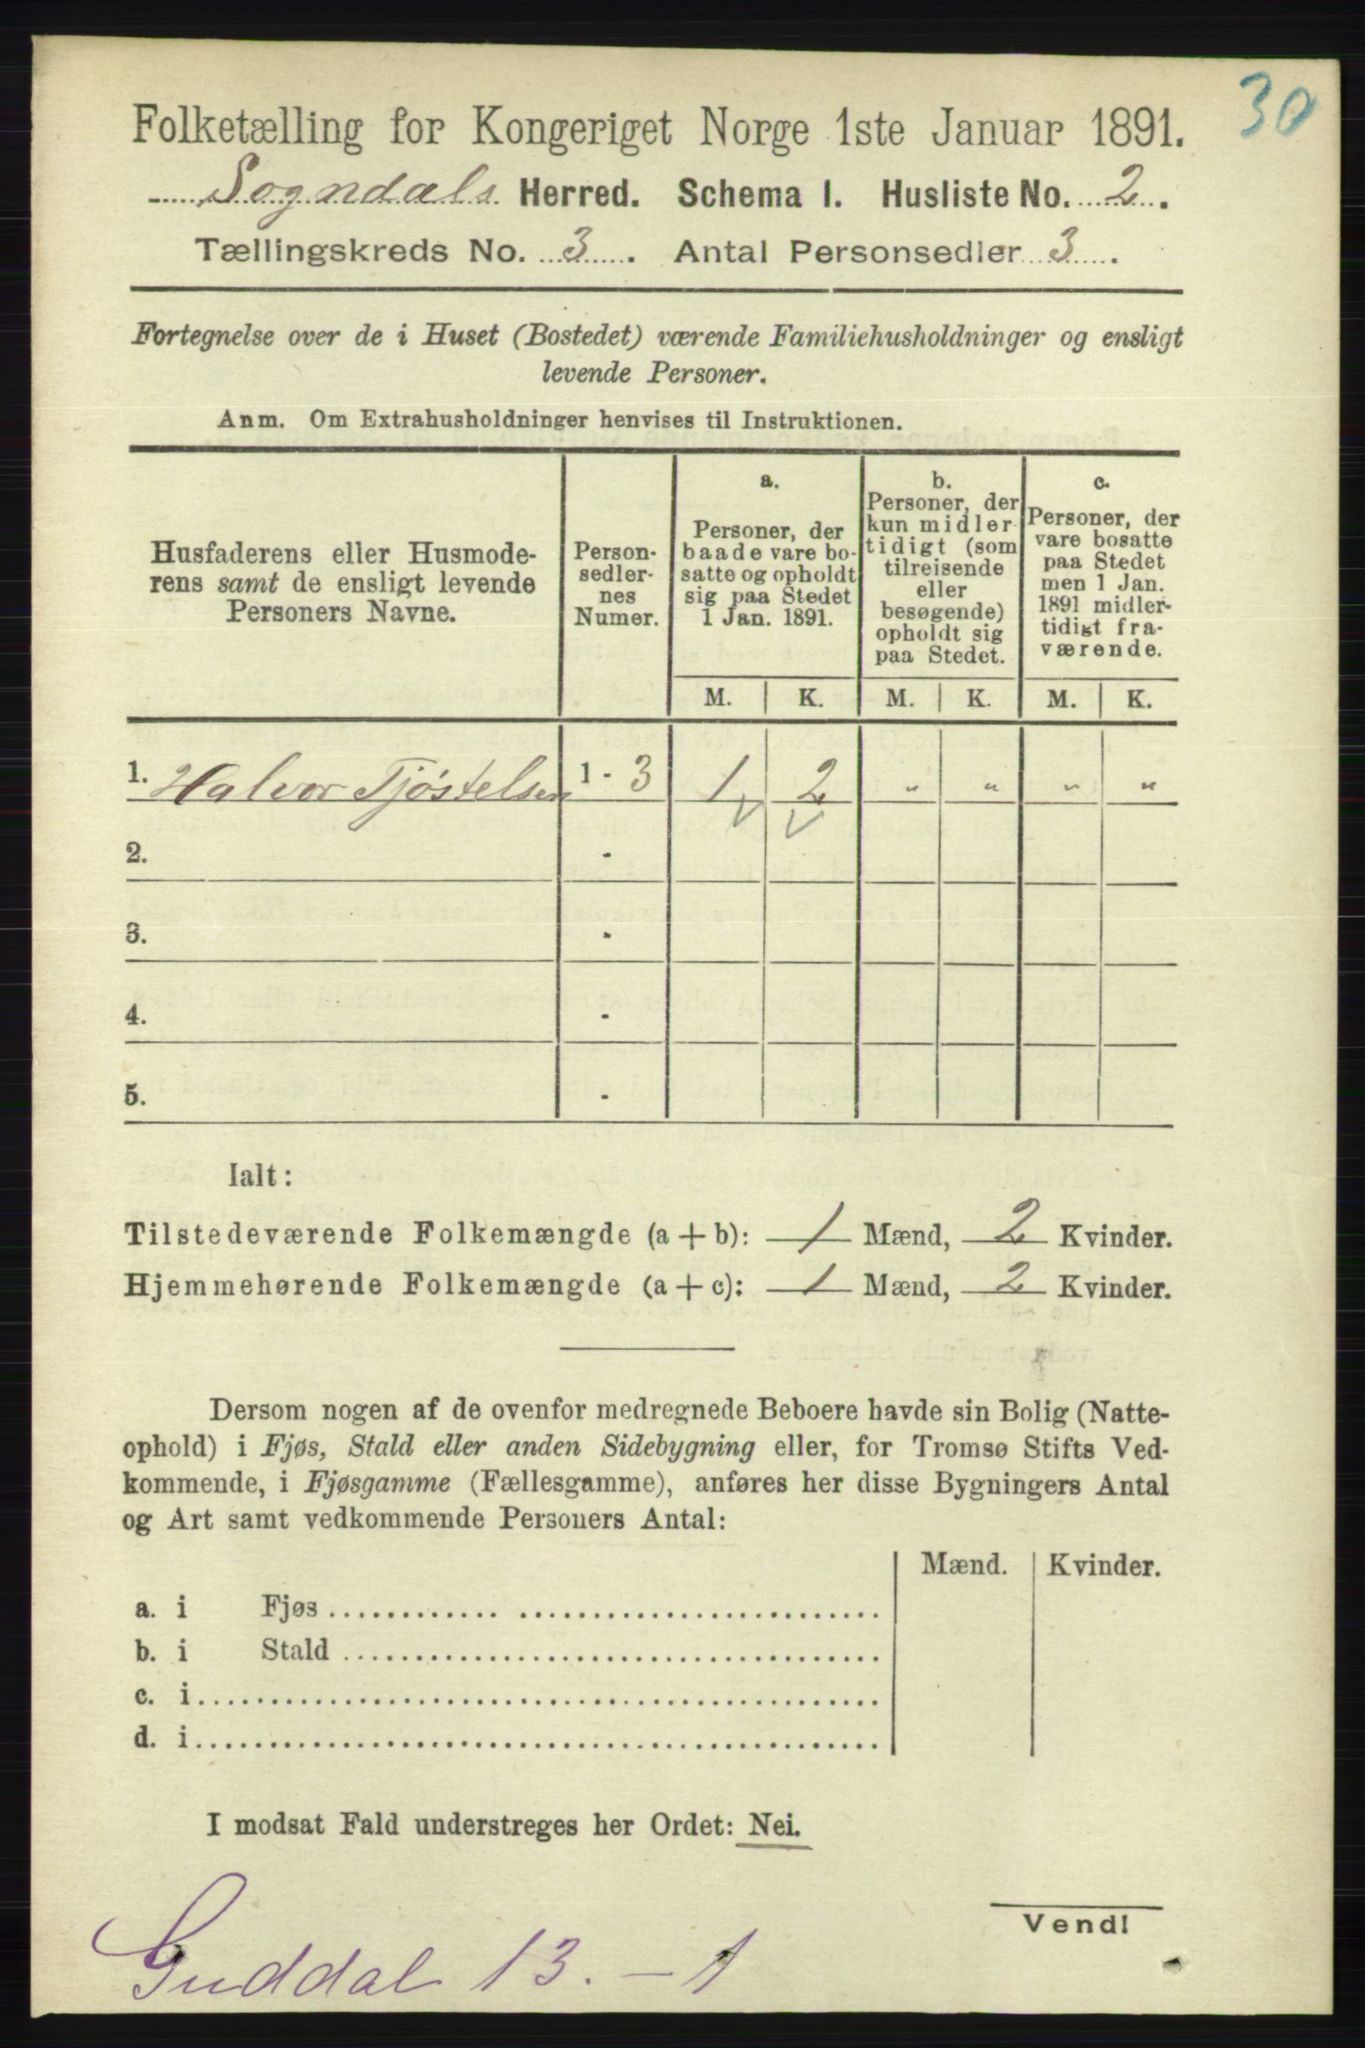 30
Folketælling for Kongeriget Norge 1ste Januar 1891.
Sogndals Herred. Schema I. Husliste No. 2.
Tællingskreds No. 3. Antal Personsedler 3.
Fortegnelse over de i Huset (Bostedet) værende Familiehusholdninger og ensligt
levende Personer.
Anm. Om Extrahusholdninger henvises til Instruktionen.
Husfaderens eller Husmode-
rens samt de ensligt levende
Personers Navne.
Person-
sedler-
nes
Numer.
a.
Personer, der
baade vare bo-
satte og opholdt
sig paa Stedet
1 Jan. 1891.
b.
Personer, der
kun midler-
tidigt (som
tilreisende
eller
besøgende)
opholdt sig
paa Stedet.
c.
Personer, der
vare bosatte
paa Stedet
men 1 Jan.
1891 midler-
tidigt fra-
værende.
M. K. M. K. M. K.
1. Halvor Tjøstelsen 1 - 3 1 2 " " " "
2. -
3. -
4. -
5. -
Ialt:
Tilstedeværende Folkemængde (a + b): 1 Mænd, 2 Kvinder.
Hjemmehørende Folkemængde (a + c): 1 Mænd, 2 Kvinder.
Dersom nogen af de ovenfor medregnede Beboere havde sin Bolig (Natte-
ophold) i Fjøs, Stald eller anden Sidebygning eller, for Tromsø Stifts Ved-
kommende, i Fjøsgamme (Fællesgamme), anføres her disse Bygningers Antal
og Art samt vedkommende Personers Antal:
Mænd. Kvinder.
a. i Fjøs
b. i Stald
c. i
d. i
I modsat Fald understreges her Ordet: Nei.
Vend!
Guddal 13. - 1